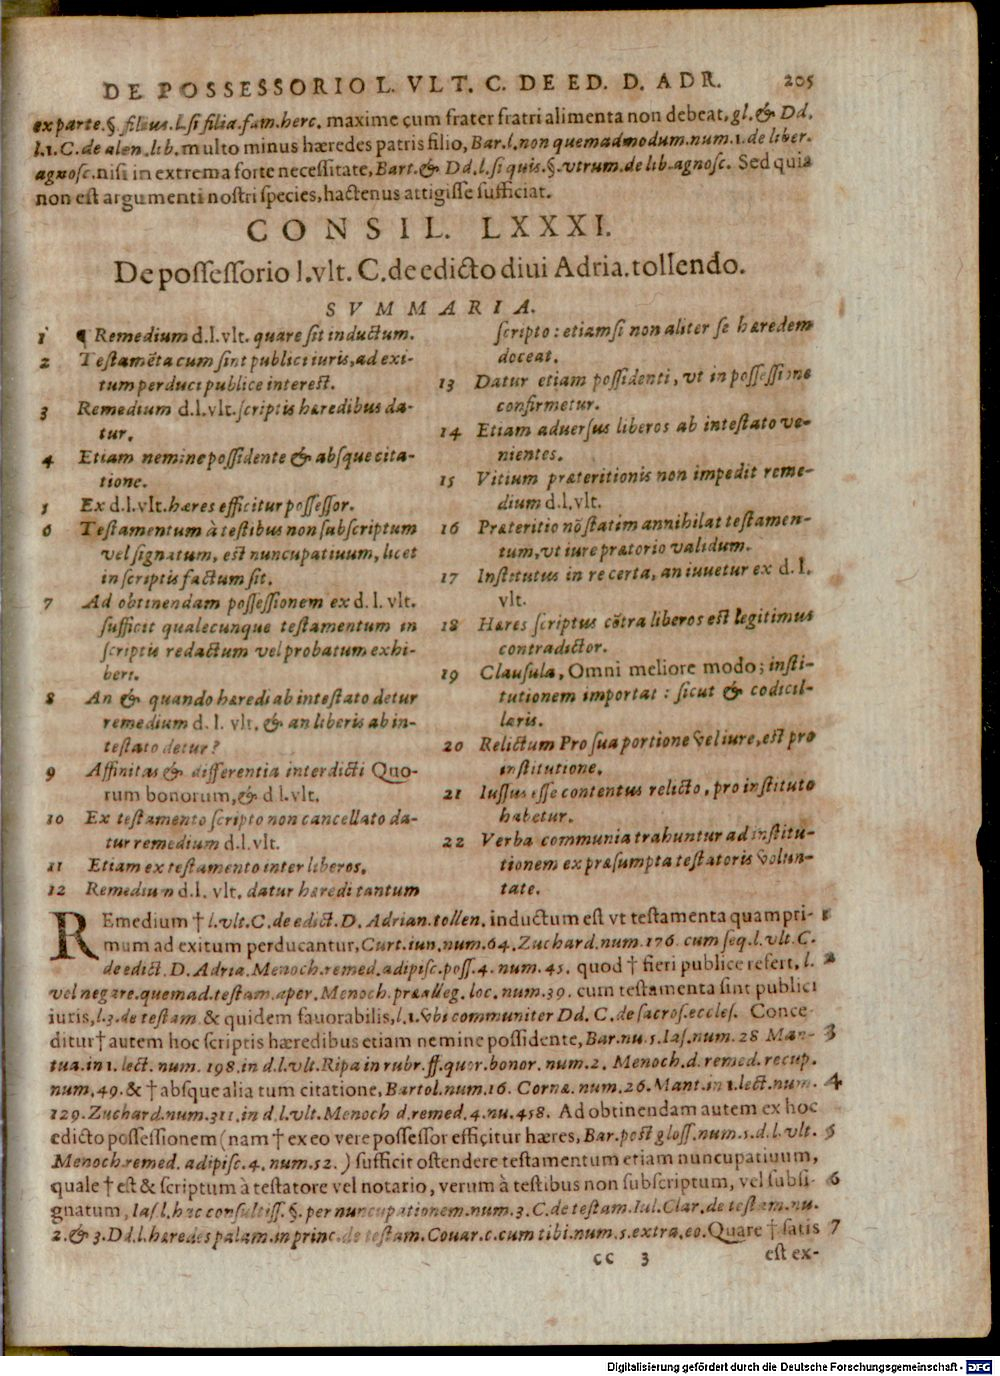 DE POSSESSORIO L. VLT. C. DE ED. D. ADR. 205
ex parte. §. filius. l. si filia. fam. herc. maxime cum frater fratri alimenta non debeat, gl. & Dd.
l. 1. C. de alen. lib. multo minus hæredes patris filio, Bar. l. non quemadmodum. num. 1. de liber.
agnosc. nisi in extrema forte necessitate, Bart. & Dd. l. si quis. §. vtrum. de lib. agnosc. Sed quia
non est argumenti nostri species, hactenus attigisse sufficiat.
CONSIL. LXXXI.
De possessorio l. vlt. C. de edicto diui Adria. tollendo.
SVMMARIA.
1 ¶ Remedium d. l. vlt. quare sit inductum.
2 Testamẽta cum sint publici iuris, ad exi-
tum perduci publice interest.
3 Remedium d. l. vlt. scriptis hæredibus da-
tur.
4 Etiam nemine possidente & absque cita-
tione.
5 Ex d. l. vlt. hæres efficitur possessor.
6 Testamentum à testibus non subscriptum
vel signatum, est nuncupatiuum, licet
in scriptis factum sit.
7 Ad obtinendam possessionem ex d. l. vlt.
sufficit qualecunque testamentum in
scriptis redactum vel probatum exhi-
beri.
8 An & quando hæredi ab intestato detur
remedium d. l. vlt. & an liberis ab in-
testato detur?
9 Affinitas & differentia interdicti Quo-
rum bonorum, & d l. vlt.
10 Ex testamento scripto non cancellato da-
tur remedium d. l. vlt.
11 Etiam ex testamento inter liberos.
12 Remedium d. l. vlt. datur hæredi tantum
scripto: etiamsi non aliter se hæredem
doceat.
13 Datur etiam possidenti, vt in possessione
confirmetur.
14 Etiam aduersus liberos ab intestato ve-
nientes.
15 Vitium præteritionis non impedit reme-
dium d. l. vlt.
16 Præteritio nõ statim annihilat testamen-
tum, vt iure prætorio validum.
17 Institutus in re certa, an iuuetur ex d. l.
vlt.
18 Hæres scriptus cõtra liberos est legitimus
contradictor.
19 Clausula, Omni meliore modo; insti-
tutionem importat: sicut & codicil-
laris.
20 Relictum Pro sua portione vel iure, est pro
institutione.
21 Iussus esse contentus relicto, pro instituto
habetur.
22 Verba communia trahuntur ad institu-
tionem ex præsumpta testatoris volun-
tate.
REmedium † l. vlt. C. de edict. D. Adrian. tollen. inductum est vt testamenta quampri- 1
mum ad exitum perducantur, Curt. iun. num. 64. Zuchard. num. 176. cum seq. l. vlt. C.
de edict. D. Adria. Menoch. remed. adipisc. poss. 4. num. 45. quod † fieri publice refert, l. 2
vel negare. quemad. testam. aper. Menoch. præalleg. loc. num. 39. cum testamenta sint publici
iuris, l. 3. de testam. & quidem fauorabilis, l. 1. vbi communiter Dd. C. de sacros. eccles. Conce-
ditur † autem hoc scriptis hæredibus etiam nemine possidente, Bar. nu. 5. Ias. num. 28 Man- 3
tua. in 1. lect. num. 198. in d. l. vlt. Ripa in rubr. ff. quor. bonor. num. 2. Menoch. d. remed. recup.
num. 49. & † absque alia tum citatione, Bartol. num. 16. Cornæ. num. 26. Mant. in 1. lect. num. 4
129. Zuchard. num. 311. in d. l. vlt. Menoch d. remed. 4. nu. 458. Ad obtinendam autem ex hoc
edicto possessionem (nam † ex eo vere possessor efficitur hæres, Bar. post gloss. num. 5. d. l. vlt. 5
Menoch. remed. adipisc. 4. num. 52.) sufficit ostendere testamentum etiam nuncupatiuum,
quale † est & scriptum à testatore vel notario, verum à testibus non subscriptum, vel subsi- 6
gnatum, Ias. l. hac consultiss. §. per nuncupationem. num. 3. C. de testam. Iul. Clar. de testam. nu.
2. & 3. Dd. l. hæredes palam. in princ. de testam. Couar. c. cum tibi. num. 5. extra. eo. Quare † satis 7
cc 3 est ex-
Digitalisierung gefördert durch die Deutsche Forschungsgemeinschaft - DFG